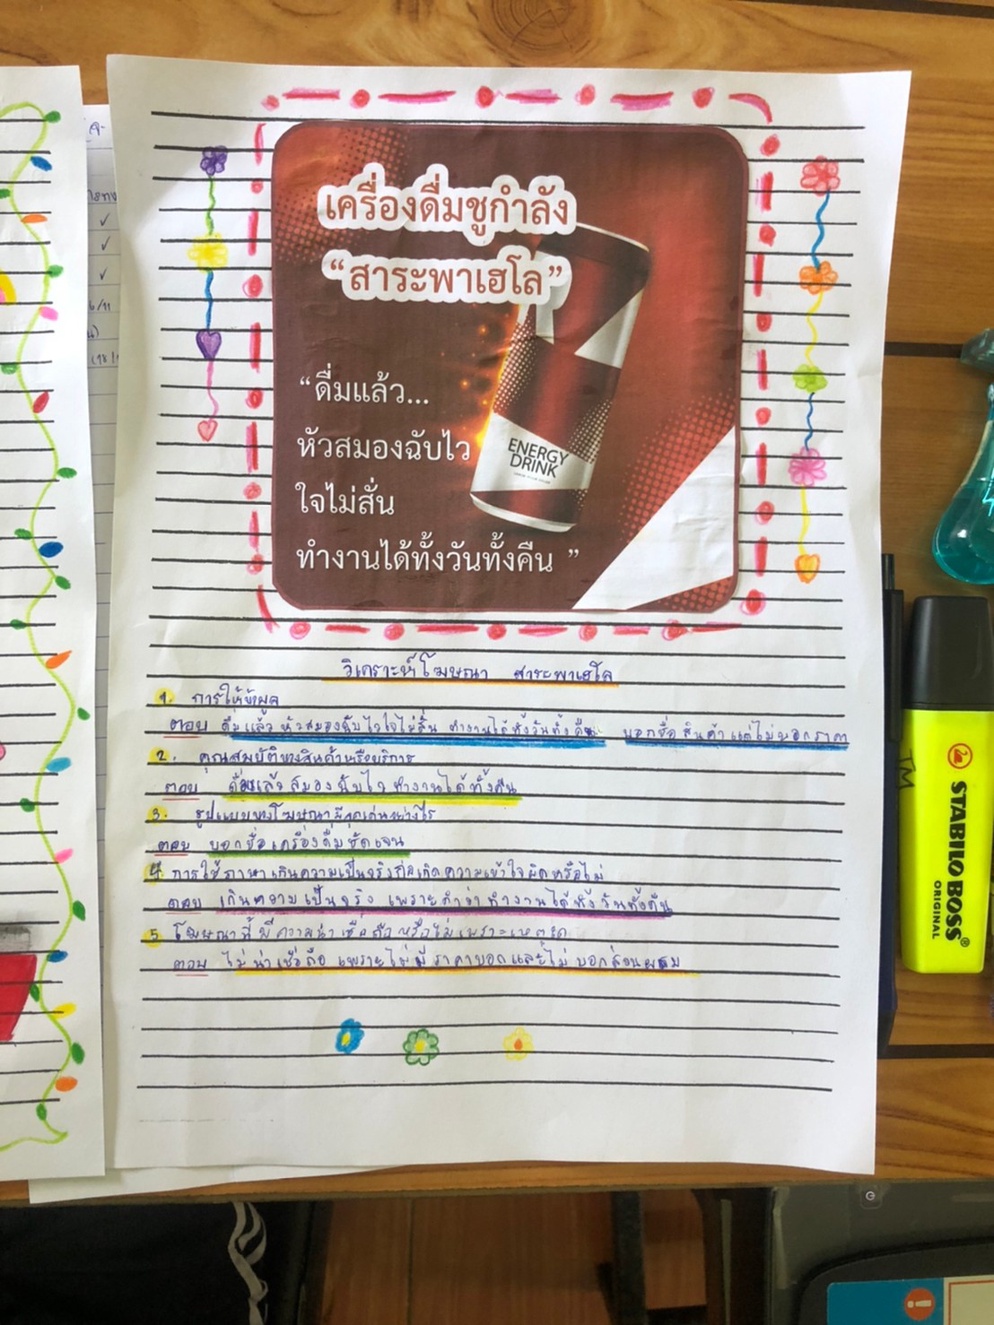 เครื่องดื่มชูกำลัง
“สาระพาเฮโล”
“ดื่มแล้ว...
หัวสมองฉับไว
ใจไม่สั่น
ทำงานได้ทั้งวันทั้งคืน”
ENERGY
DRINK
วิเคราะห์โฆษณา สาระพาเฮโล
1. การให้ข้อมูล
ตอบ ดื่มแล้ว หัวสมองฉับไวใจไม่สั่น ทำงานได้ทั้งวันทั้งคืน บอกชื่อสินค้าแต่ไม่บอกราคา
2. คุณสมบัติของสินค้าหรือบริการ
ตอบ ดื่มแล้วสมองฉับไว ทำงานได้ทั้งคืน
3. รูปแบบของโฆษณามีจุดเด่นอย่างไร
ตอบ บอกชื่อเครื่องดื่มชัดเจน
4. การใช้ภาษาเกินความเป็นจริงก่อเกิดความเข้าใจผิดหรือไม่
ตอบ เกินความเป็นจริง เพราะคำว่าทำงานได้ทั้งวันทั้งคืน
5. โฆษณานี้มีความน่าเชื่อถือหรือไม่เพราะเหตุใด
ตอบ ไม่น่าเชื่อถือ เพราะไม่มีราคาบอกและไม่บอกส่วนผสม
STABILO BOSS
ORIGINAL